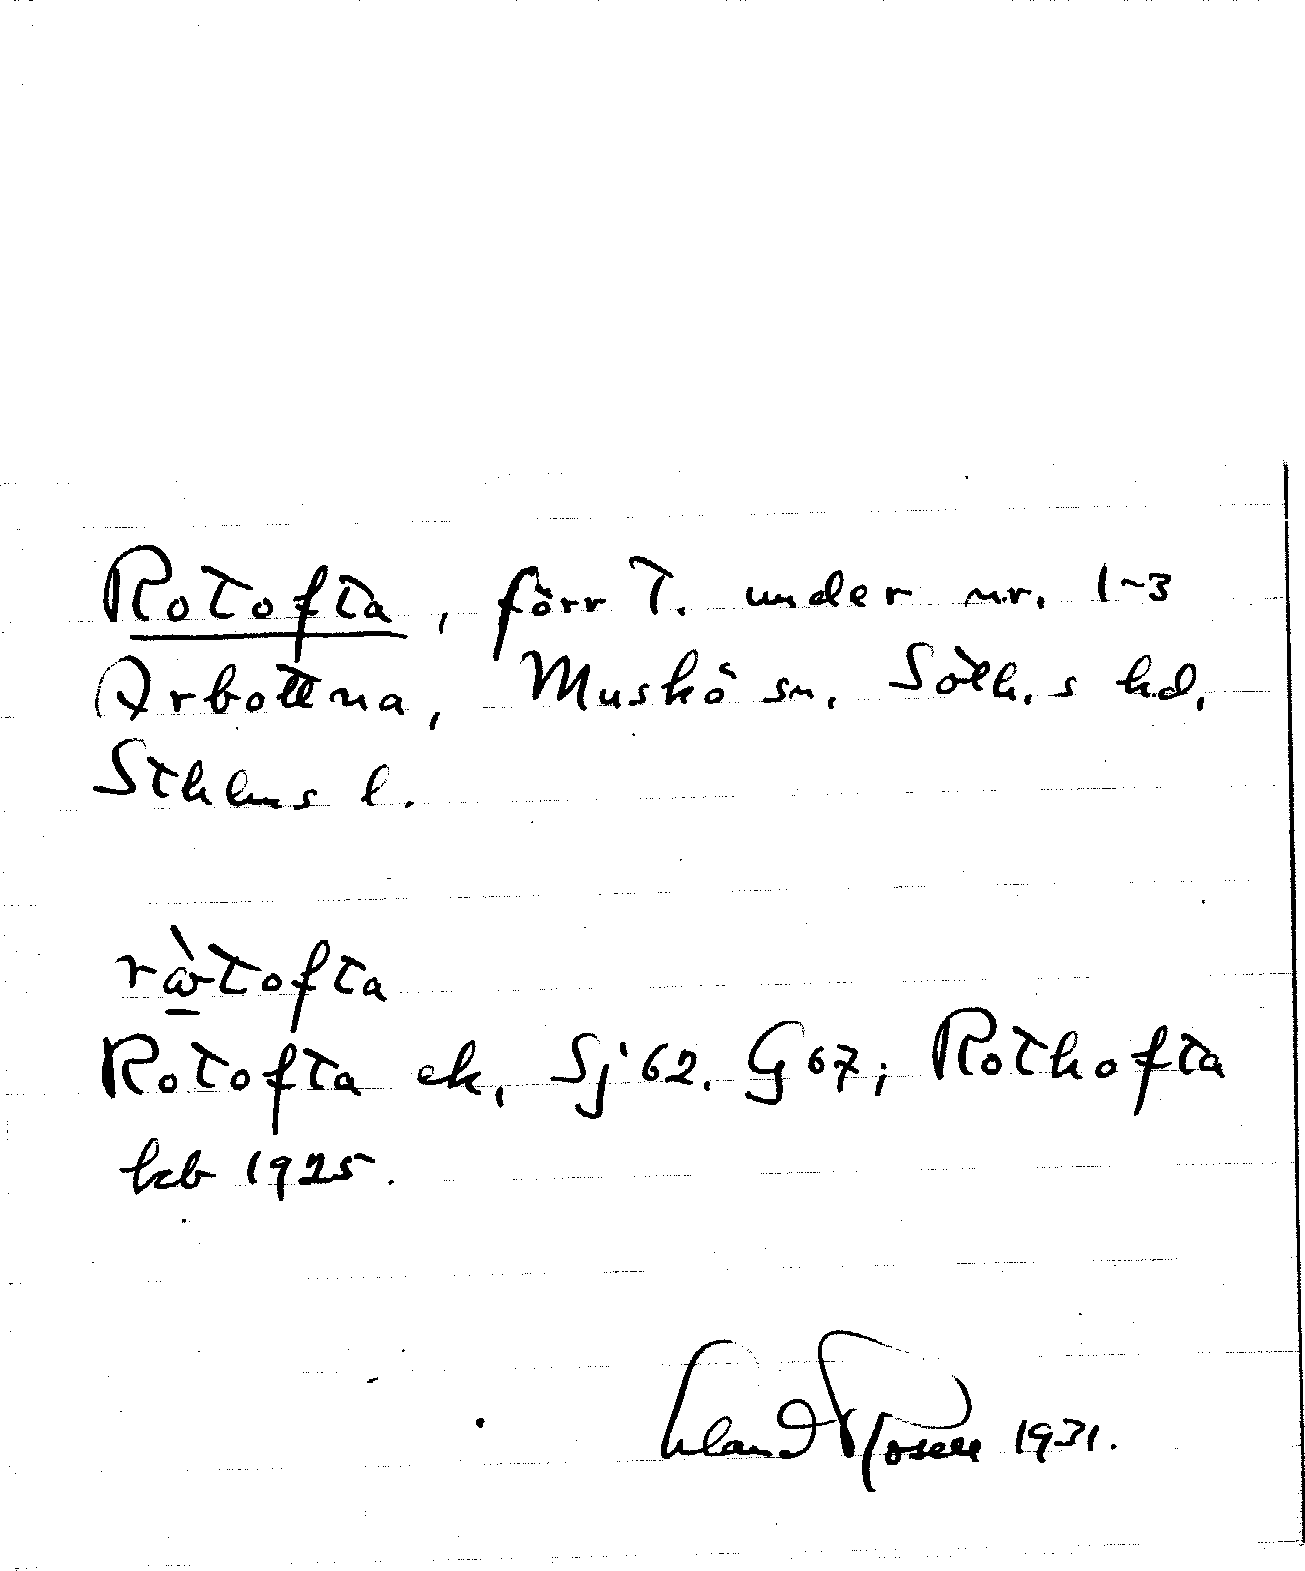 Rotofta, förr T. under nr. 1-3
Arbottna, Muskö sn. Soth.s hd.
Sthlms l.
rὼtofta
Rotofta ek. Sj 62. G 67; Rothofta
kb 1925.
Erland Rosell 1931.